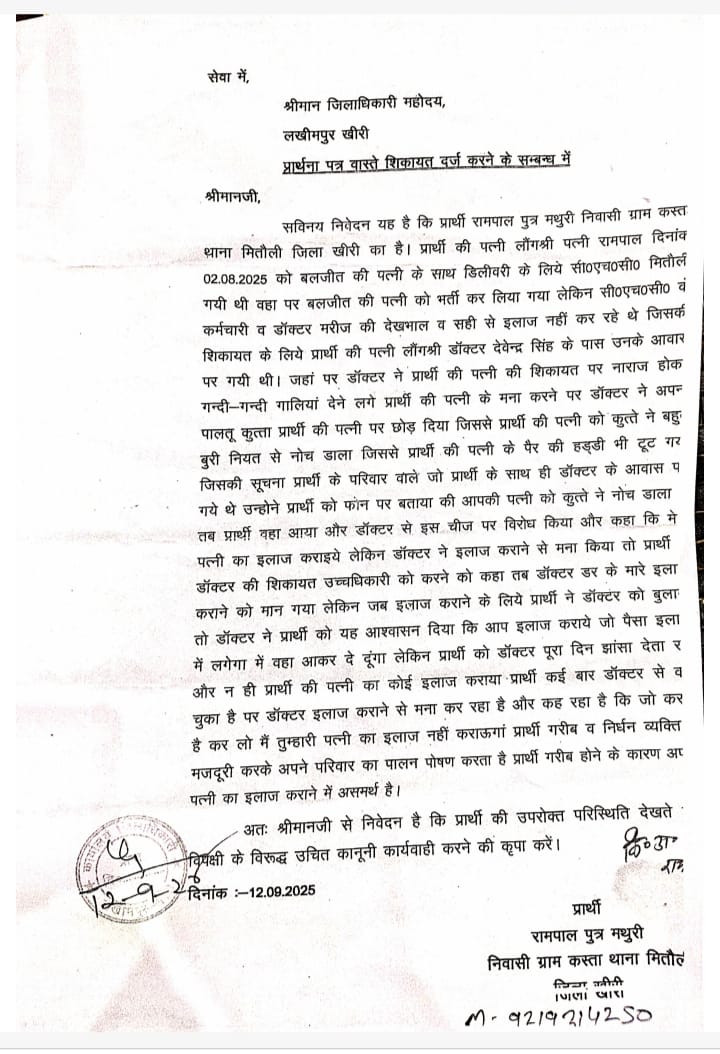 सेवा में,
श्रीमान जिलाधिकारी महोदय,
लखीमपुर खीरी
प्रार्थना पत्र वास्ते शिकायत दर्ज करने के सम्बन्ध में
श्रीमानजी,
सविनय निवेदन यह है कि प्रार्थी रामपाल पुत्र मथुरी निवासी ग्राम कस्त
थाना मितौली जिला खीरी का है। प्रार्थी की पत्नी लौंगश्री पत्नी रामपाल दिनांक
02.08.2025 को बलजीत की पत्नी के साथ डिलीवरी के लिये सी0एच0सी0 मितौल
गयी थी वहा पर बलजीत की पत्नी को भर्ती कर लिया गया लेकिन सी0एच0सी0
कर्मचारी व डॉक्टर मरीज की देखभाल व सही से इलाज नहीं कर रहे थे जिसक
शिकायत के लिये प्रार्थी की पत्नी लौंगश्री डॉक्टर देवेन्द्र सिंह के पास उनके आवार
पर गयी थी। जहां पर डॉक्टर ने प्रार्थी की पत्नी की शिकायत पर नाराज होक
गन्दी–गन्दी गालियां देने लगे प्रार्थी की पत्नी के मना करने पर डॉक्टर ने अपन
पालतू कुत्ता प्रार्थी की पत्नी पर छोड़ दिया जिससे प्रार्थी की पत्नी को कुत्ते ने बहु
बुरी नियत से नोच डाला जिससे प्रार्थी की पत्नी के पैर की हड्डी भी टूट गर
जिसकी सूचना प्रार्थी के परिवार वाले जो प्रार्थी के साथ ही डॉक्टर के आवास प
गये थे उन्होने प्रार्थी को फोन पर बताया की आपकी पत्नी को कुत्ते ने नोच डाला
तब प्रार्थी वहा आया और डॉक्टर से इस चीज पर विरोध किया और कहा कि मे
पत्नी का इलाज कराइये लेकिन डॉक्टर ने इलाज कराने से मना किया तो प्रार्थी
डॉक्टर की शिकायत उच्चधिकारी को करने को कहा तब डॉक्टर डर के मारे इला
कराने को मान गया लेकिन जब इलाज कराने के लिये प्रार्थी ने डॉक्टर को बुला
तो डॉक्टर ने प्रार्थी को यह आश्वासन दिया कि आप इलाज कराये जो पैसा इला
में लगेगा में वहा आकर दे दूंगा लेकिन प्रार्थी को डॉक्टर पूरा दिन झांसा देता र
और न ही प्रार्थी की पत्नी का कोई इलाज कराया प्रार्थी कई बार डॉक्टर से व
चुका है पर डॉक्टर इलाज कराने से मना कर रहा है और कह रहा है कि जो कर
है कर लो मैं तुम्हारी पत्नी का इलाज नहीं कराऊगां प्रार्थी गरीब व निर्धन व्यक्ति
मजदूरी करके अपने परिवार का पालन पोषण करता है प्रार्थी गरीब होने के कारण अप
पत्नी का इलाज कराने में असमर्थ है।
अतः श्रीमानजी से निवेदन है कि प्रार्थी की उपरोक्त परिस्थिति देखते
विपक्षी के विरूद्ध उचित कानूनी कार्यवाही करने की कृपा करें।
दिनांक :–12.09.2025
प्रार्थी
रामपाल पुत्र मथुरी
निवासी ग्राम कस्ता थाना मितौल
जिला खीरी
M- 9219214250